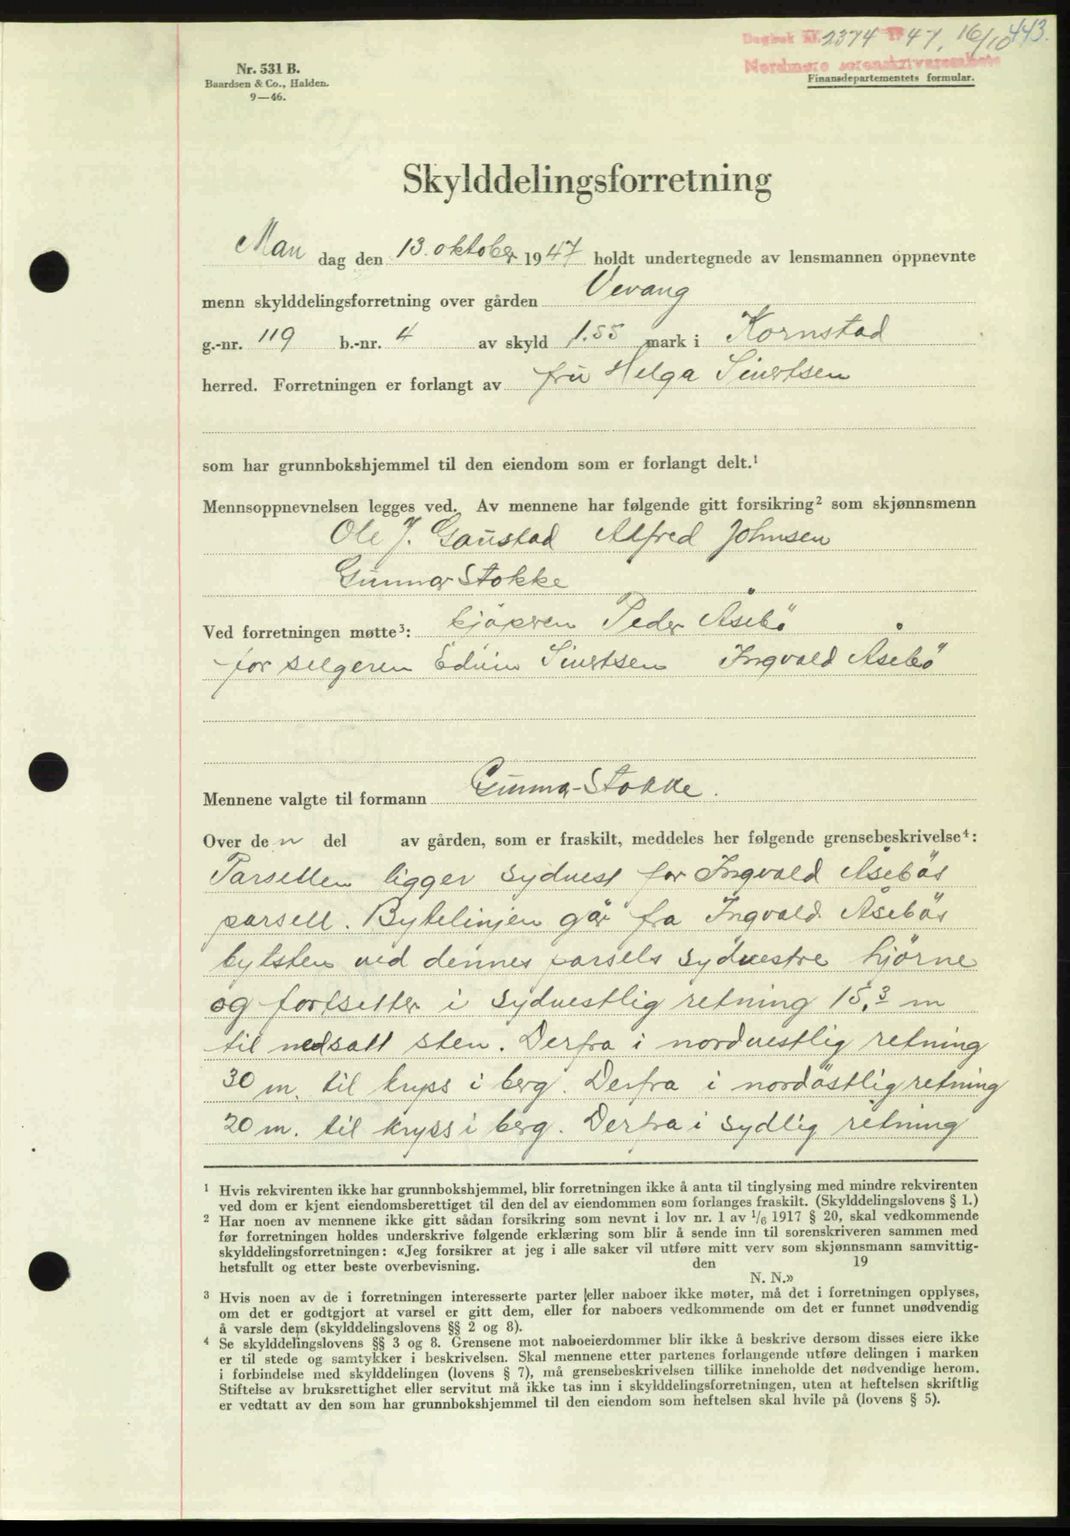 443.
Dagbok nr. 2374 1947, 16/10
Nordmøre sorenskriverembete
Nr. 531 B.
Baardsen & Co., Halden.
9—46.
Finansdepartementets formular.
Skylddelingsforretning
Man dag den 13. oktober 1947 holdt undertegnede av lensmannen oppnevnte
menn skylddelingsforretning over gården Vevang
g.-nr. 119 b.-nr. 4 av skyld 1.55 mark i Kornstad
herred. Forretningen er forlangt av fru Helga Sivertsen
som har grunnbokshjemmel til den eiendom som er forlangt delt.¹
Mennsoppnevnelsen legges ved. Av mennene har følgende gitt forsikring² som skjønnsmenn
Ole J. Gaustad Alfred Johnsen
Gunnar Stokke
Ved forretningen møtte³: kjöperen Peder Åsebö
for selgeren Edvin Sivertsen Ingvald Åsebö
Mennene valgte til formann Gunnar Stokke.
Over den del av gården, som er fraskilt, meddeles her følgende grensebeskrivelse⁴:
Parsellen ligger sydvest for Ingvald Åsebös
parsell. Bytelinjen går fra Ingvald Åsebös
bytsten ved dennes parsels sydvestre hjörne
og fortsetter i sydvestlig retning 15,3 m
til nedsatt sten. Derfra i nordvestlig retning
30 m. til kryss i berg. Derfra i nordöstlig retning
20 m. til kryss i berg. Derfra i sydlig retning
¹ Hvis rekvirenten ikke har grunnbokshjemmel, blir forretningen ikke å anta til tinglysing med mindre rekvirenten
ved dom er kjent eiendomsberettiget til den del av eiendommen som forlanges fraskilt. (Skylddelingslovens § 1.)
² Har noen av mennene ikke gitt sådan forsikring som nevnt i lov nr. 1 av 1/6 1917 § 20, skal vedkommende
før forretningen holdes underskrive følgende erklæring som blir å sende inn til sorenskriveren sammen med
skylddelingsforretningen: «Jeg forsikrer at jeg i alle saker vil utføre mitt verv som skjønnsmann samvittig-
hetsfullt og etter beste overbevisning. den 19
N. N.»
³ Hvis noen av de i forretningen interesserte parter eller naboer ikke møter, må det i forretningen opplyses,
om det er godtgjort at varsel er gitt dem, eller for naboers vedkommende om det er funnet unødvendig
å varsle dem (skylddelingslovens §§ 2 og 8).
⁴ Se skylddelingslovens §§ 3 og 8. Grensene mot naboeierdommer blir ikke å beskrive dersom disses eiere ikke
er til stede og samtykker i beskrivelsen. Skal mennene etter partenes forlangende utføre delingen i marken
i forbindelse med skylddelingen (lovens § 7), må grensebeskrivelsen tillike inneholde det nødvendige herom.
Stiftelse av bruksrettighet eller servitut må ikke tas inn i skylddelingsforretningen, uten at heftelsen skriftlig
er vedtatt av den som har grunnbokshjemmel til den eiendom som heftelsen skal hvile på (lovens § 5).